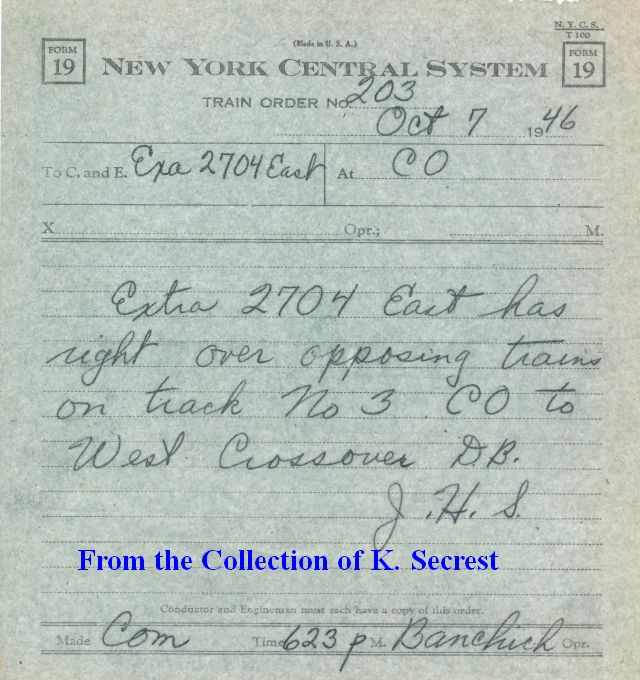 N. Y. C. S.
T 100
(Made in U. S. A.)
FORM 19
NEW YORK CENTRAL SYSTEM
FORM 19
TRAIN ORDER No. 203
Oct 7 1946
To C. and E. Exa 2704 East At CO
X Opr.; M.
Extra 2704 East has
right over opposing trains
on track No 3 CO to
West Crossover D.B.
J.H.S.
From the Collection of K. Secrest
Conductor and Engineman must each have a copy of this order.
Made Com Time 623 p M. Banchich Opr.